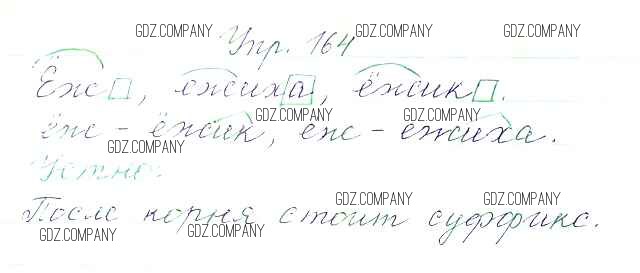 GDZ.COMPANY GDZ.COMPANY GDZ.COMPANY
Упр. 164
Ёж, ежиха, ёжик.
GDZ.COMPANY GDZ.COMPANY
ёж - ёжик, еж - ежиха.
GDZ.COMPANY
Устно.
GDZ.COMPANY GDZ.COMPANY
После корня стоит суффикс.
GDZ.COMPANY GDZ.COMPANY